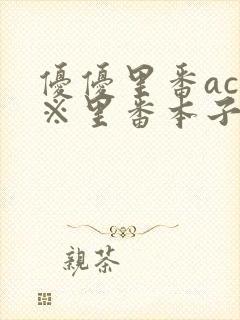 優優里番ac
※里番本子
親茶